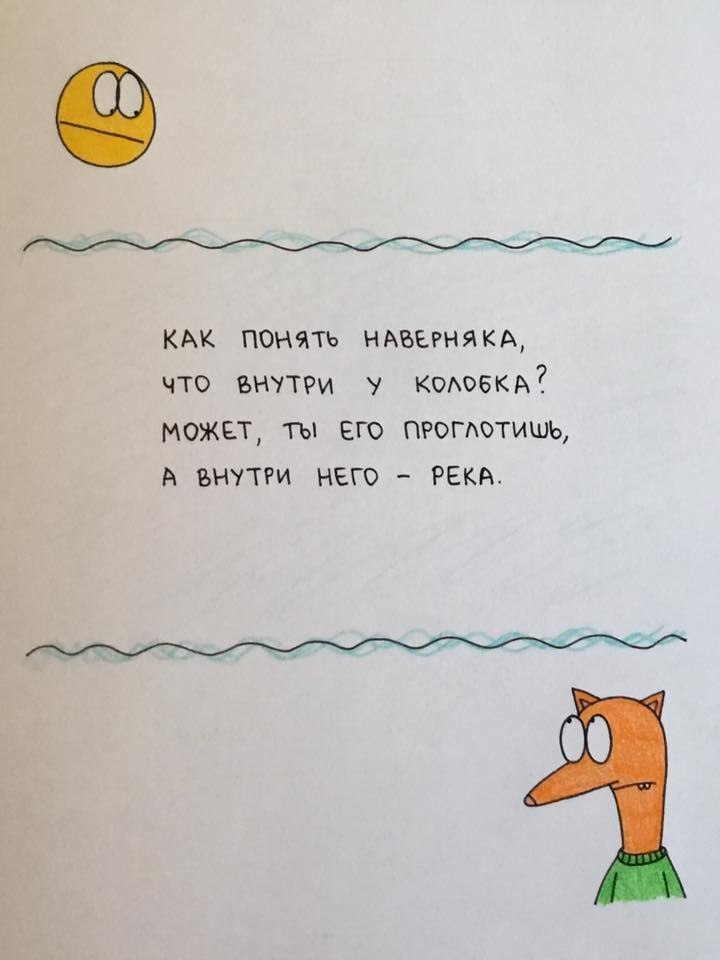 КАК ПОНЯТЬ НАВЕРНЯКА,
ЧТО ВНУТРИ У КОЛОБКА?
МОЖЕТ, ТЫ ЕГО ПРОГЛОТИШЬ,
А ВНУТРИ НЕГО – РЕКА.